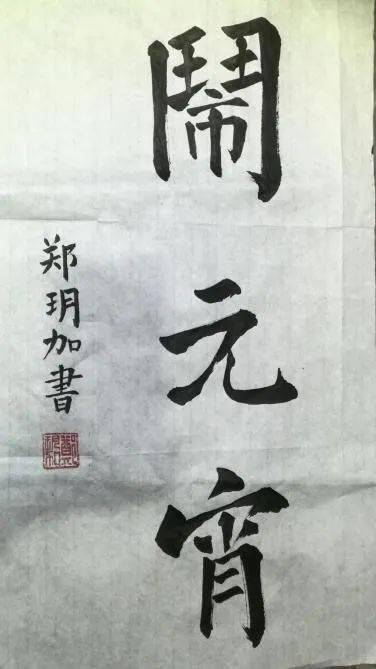 鬧元宵
郑玥加書